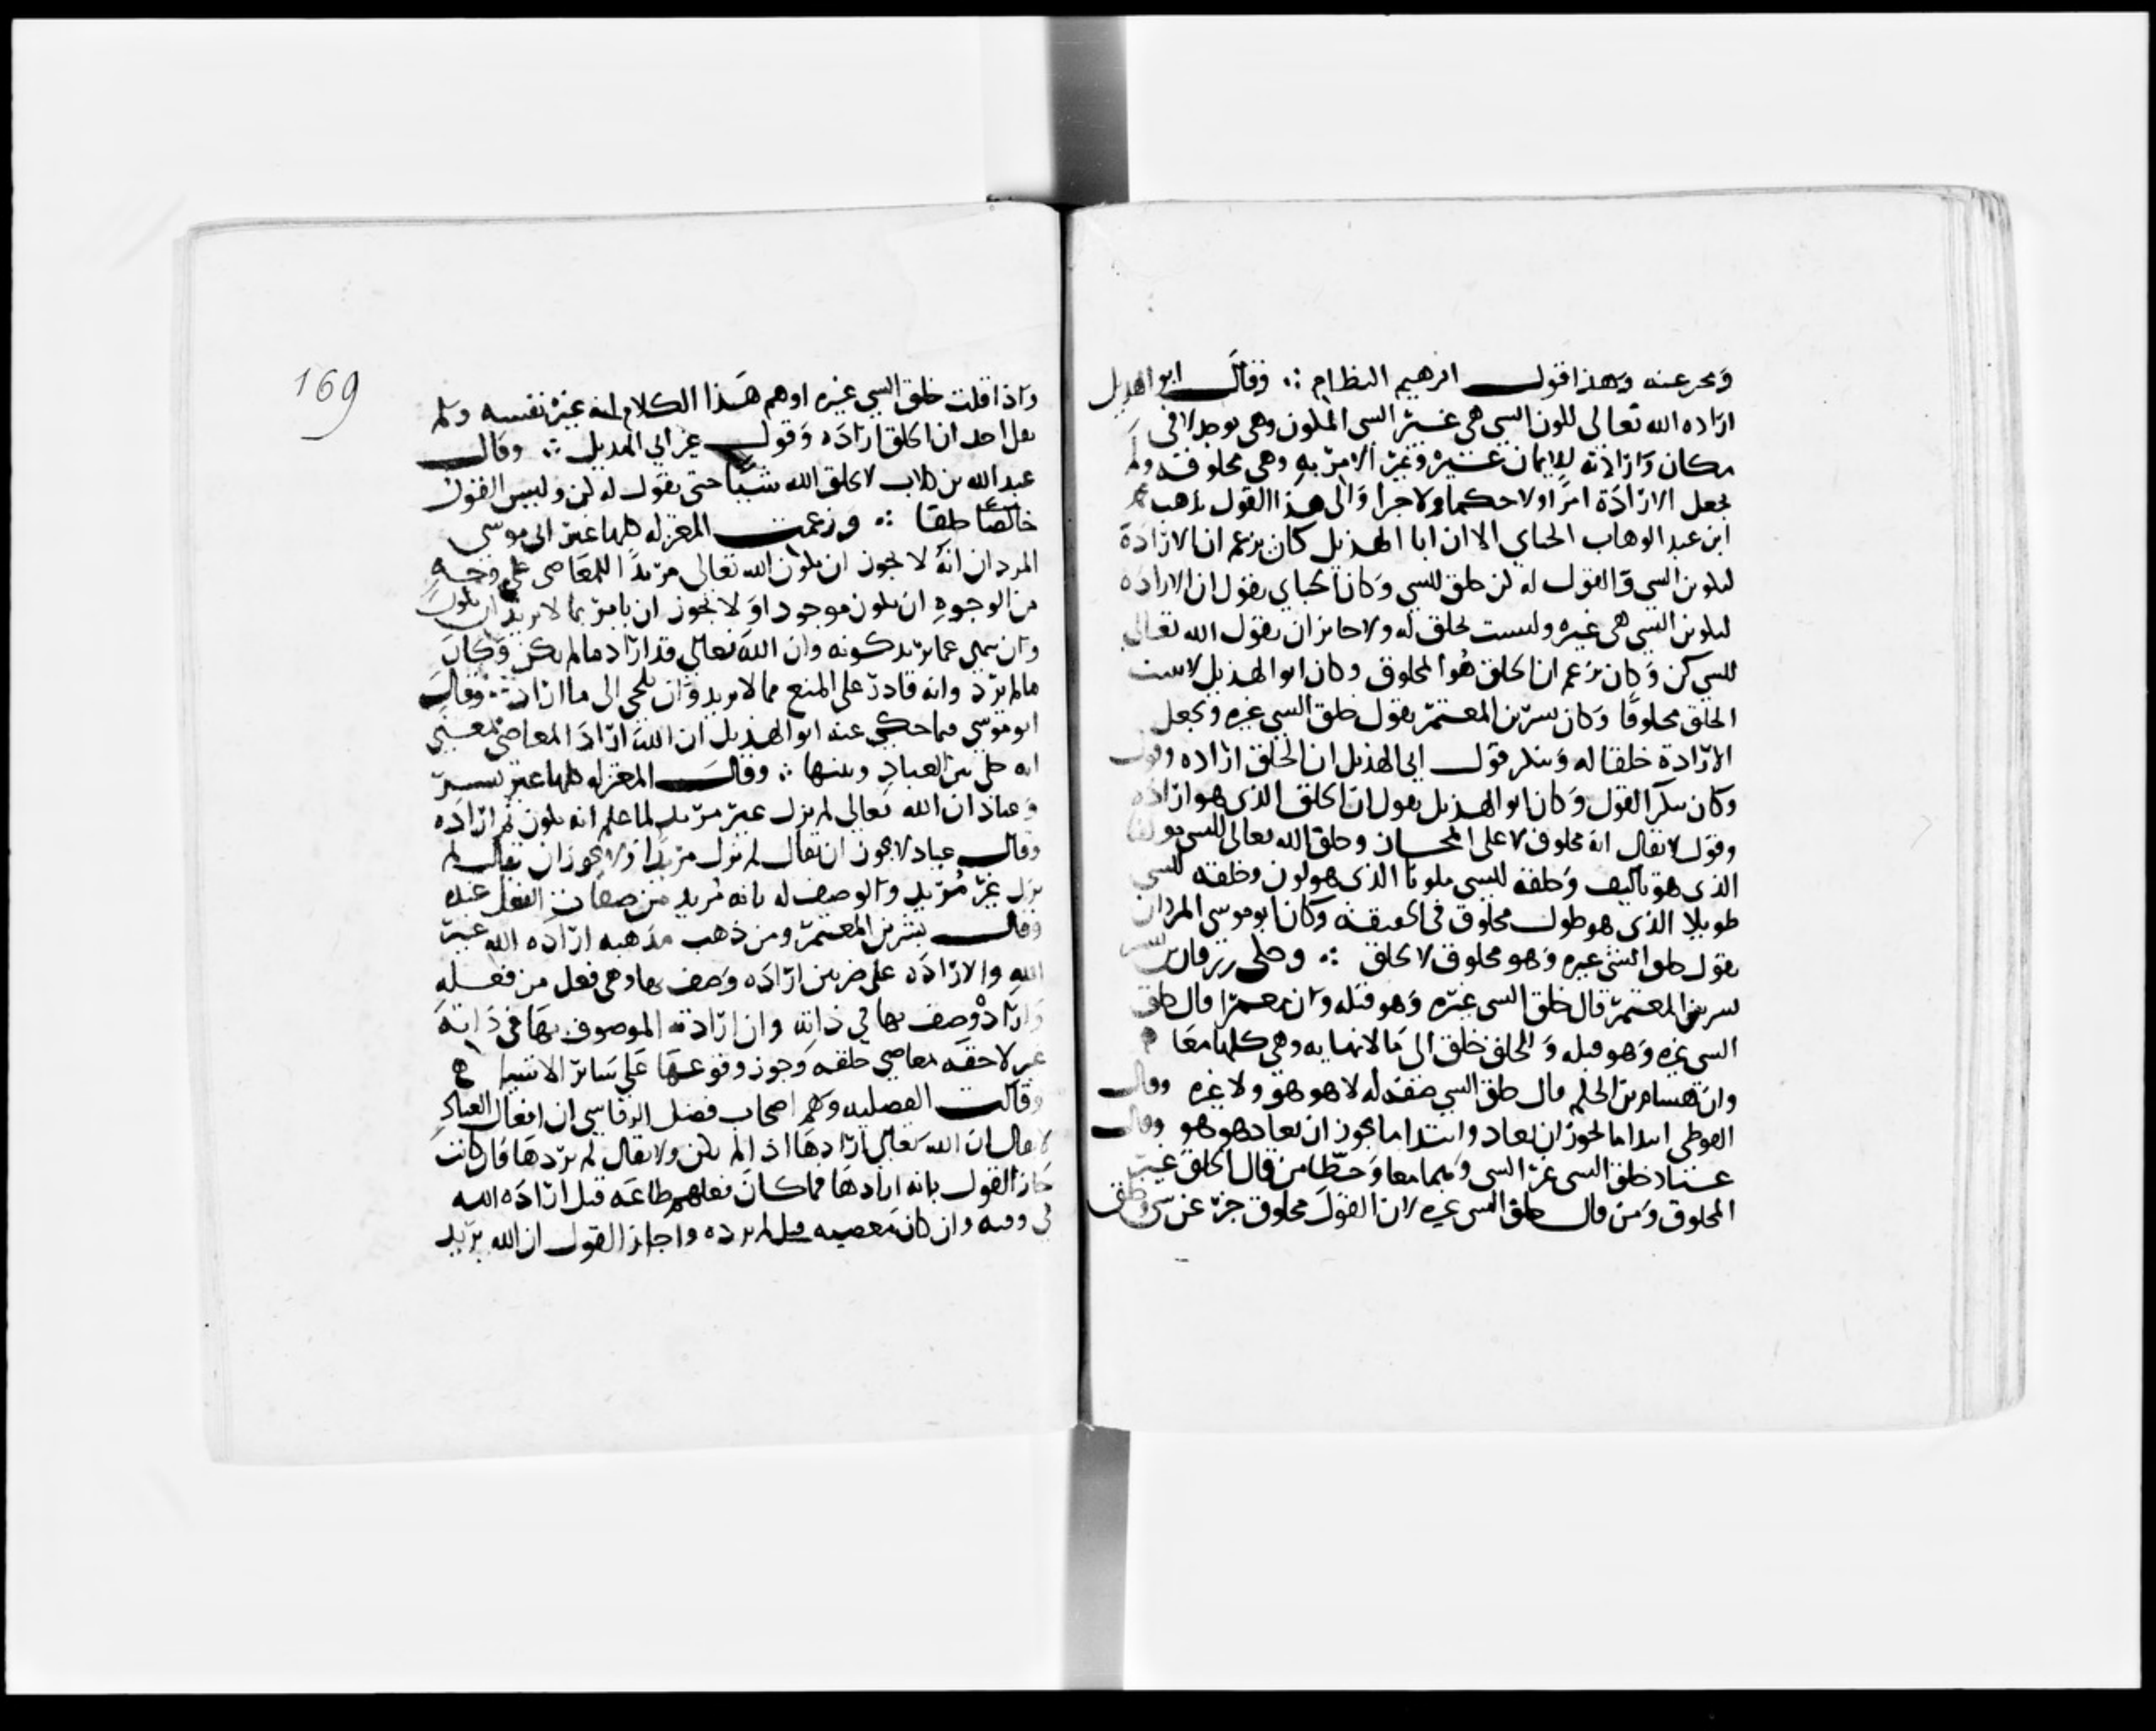 ومخبر عنه وبهذا قول ابرهيم النظام ∴ وقال ابو الهذيل
ارادة الله تعالى لكون الشي هي غير الشي المكون وهي توجد لا في
مكان وارادته للايمان غيره وغير الامر به وهي مخلوقة ولم
يجعل الارادة امرا ولا حكما ولا خبرا والى هذا القول يذهب محمد
ابن عبد الوهاب الجباي الا ان ابا الهذيل كان يزعم ان الارادة
لتكوين الشي والقول له كن خلق للشي وكان الجباي يقول ان الارادة
لتكوين الشي هي غيره وليست بخلق له ولا جايز ان يقول الله تعالى
للشي كن وكان يزعم ان الخلق هو المخلوق وكان ابو الهذيل لا يثبت
الخلق مخلوقا وكان بشر بن المعتمر يقول خلق الشي غيره ويجعل
الارادة خلقا له وينكر قول ابي الهذيل ان الخلق ارادة وقول
وكان ينكر القول وكان ابو الهذيل يقول ان الخلق الذي هو ارادة
وقول لا يقال انه مخلوق الا على المجاز وخلق الله تعالى للشي مولفا
الذي هو تاليف وخلقه للشي ملونا الذي هو لون وخلقه للشي
طويلا الذي هو طول مخلوق في الحقيقة وكان ابو موسى المردار
يقول خلق الشي غيره وهو مخلوق لا بخلق ∴ وحكى زرقان
بشر بن المعتمر قال خلق الشي غيره وهو قبله وان معمرا قال خلق
الشي غيره وهو قبله وللخلق خلق الى ما لا نهاية وهي كلها معا
وان هشام بن الحكم قال خلق الشي صفة له لا هو هو ولا غيره وقال
الفوطي ابتدا ما يجوز ان يعاد وابتدا ما يجوز ان يعاد هو هو وقال
عباد خلق الشي غير الشي وهما معا وخطا من قال الخلق غير
المخلوق ومن قال خلق الشي غيره لان القول مخلوق خبر عن شي وخلق
169
واذا قلت خلق الشي غيره اوهم هذا الكلام انه غير نفسه ولم
يقل احد ان الخلق ارادة وقول غير ابي الهذيل ∴ وقال
عبد الله بن كلاب لا يخلق الله شيا حتى يقول له كن وليس القول
خالصا خلقا ∴ وزعمت المعتزلة كلها غير ابي موسى
المردار انه لا يجوز ان يكون الله تعالى مريدا للمعاصي على وجه
من الوجوه ان يكون موجودا ولا يجوز ان يامر بما لا يريد ان يكون
وان ينهى عما يريد كونه وان الله تعالى قد اراد ما لم يكن وكان
ما لم يرد وانه قادر على المنع مما لا يريد وان يلجى الى ما اراد ∴ وقال
ابو موسى فيما حكى عنه ابو الهذيل ان الله اراد المعاصي بمعنى
انه خلى بين العباد وبينها ∴ وقالت المعتزلة كلها غير بشر
وعباد ان الله تعالى لم يزل غير مريد لما علم انه يكون ثم اراده
وقال عباد لا يجوز ان يقال لم يزل مريدا ولا يجوز ان يقال لم
يزل غير مريد والوصف له بانه مريد من صفات الفعل عنده
وقال بشر بن المعتمر ومن ذهب مذهبه ارادة الله غير
الله والارادة على ضربين ارادة وصف بها وهي فعل من فعله
واراد وصف بها في ذاته وان ارادته الموصوف بها في ذاته
غير لاحقة معاصي خلقه وجوز وقوعها على سائر الاشيا
وقالت الفضلية وهم اصحاب فضل الرقاشي ان افعال العباد
لا يقال ان الله تعالى ارادها اذا لم تكن ولا يقال لم يردها فان كانت
جاز القول بانه ارادها فما كان فعلهم طاعة قيل اراده الله
في وقته وان كان معصية قيل لم يرده واجاز القول ان الله يريد